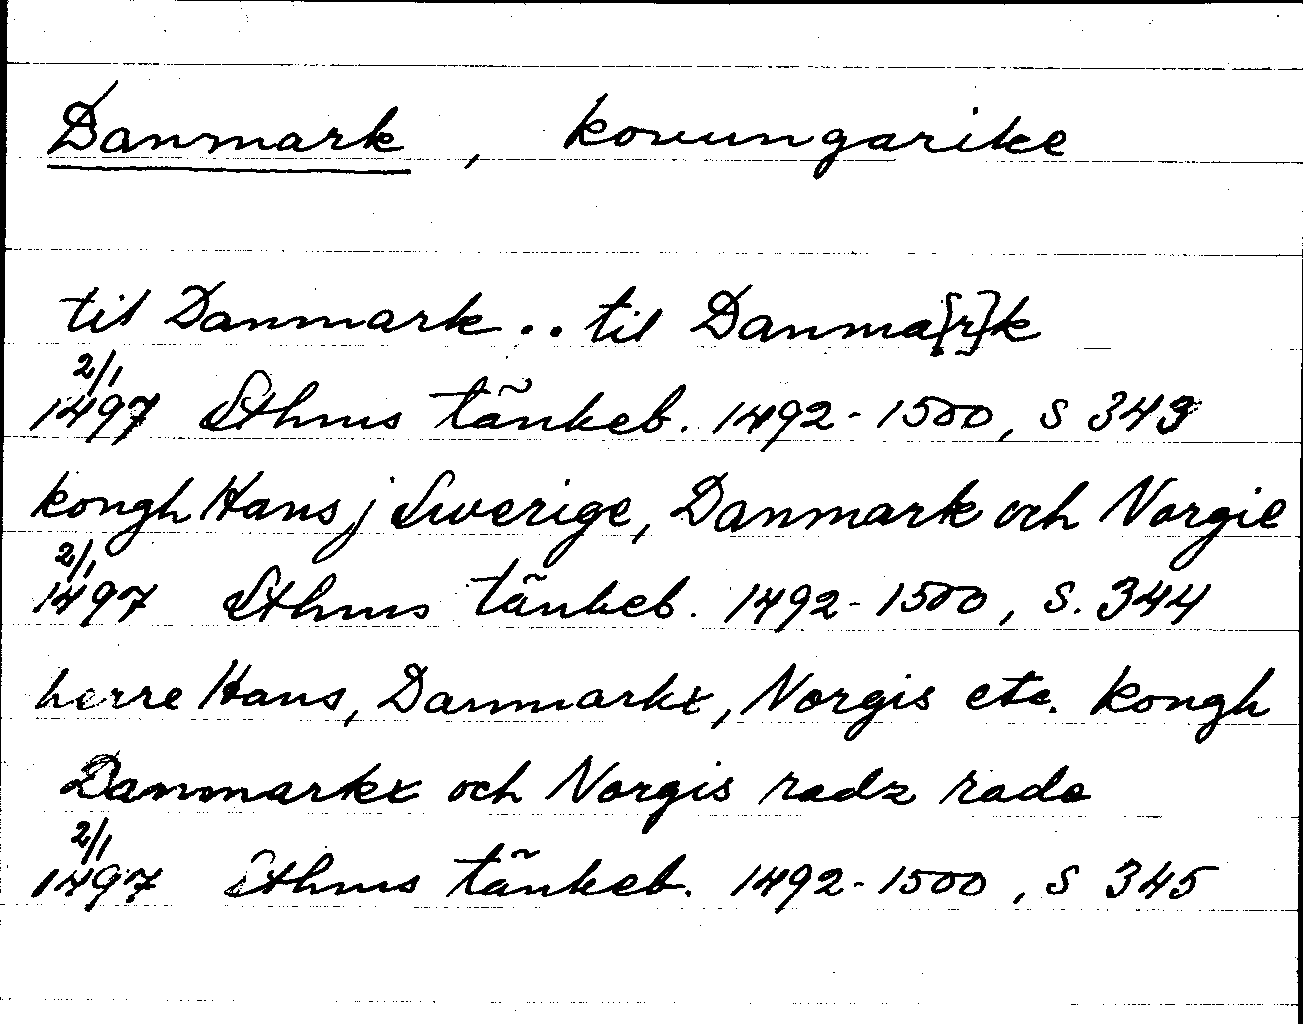 Danmark, konungarike
til Danmark .. til Danma{r}k
2/1
1497 Sthms tänkeb. 1492-1500, s 343
kongh Hans j Swerige, Danmark och Norgie
2/1
1497 Sthms tänkeb. 1492-1500, s. 344
herre Hans, Danmarkx, Norgis etc. kongh
Danmarkx och Norgis radz rade
2/1
1497 Sthms tänkeb. 1492-1500, s 345